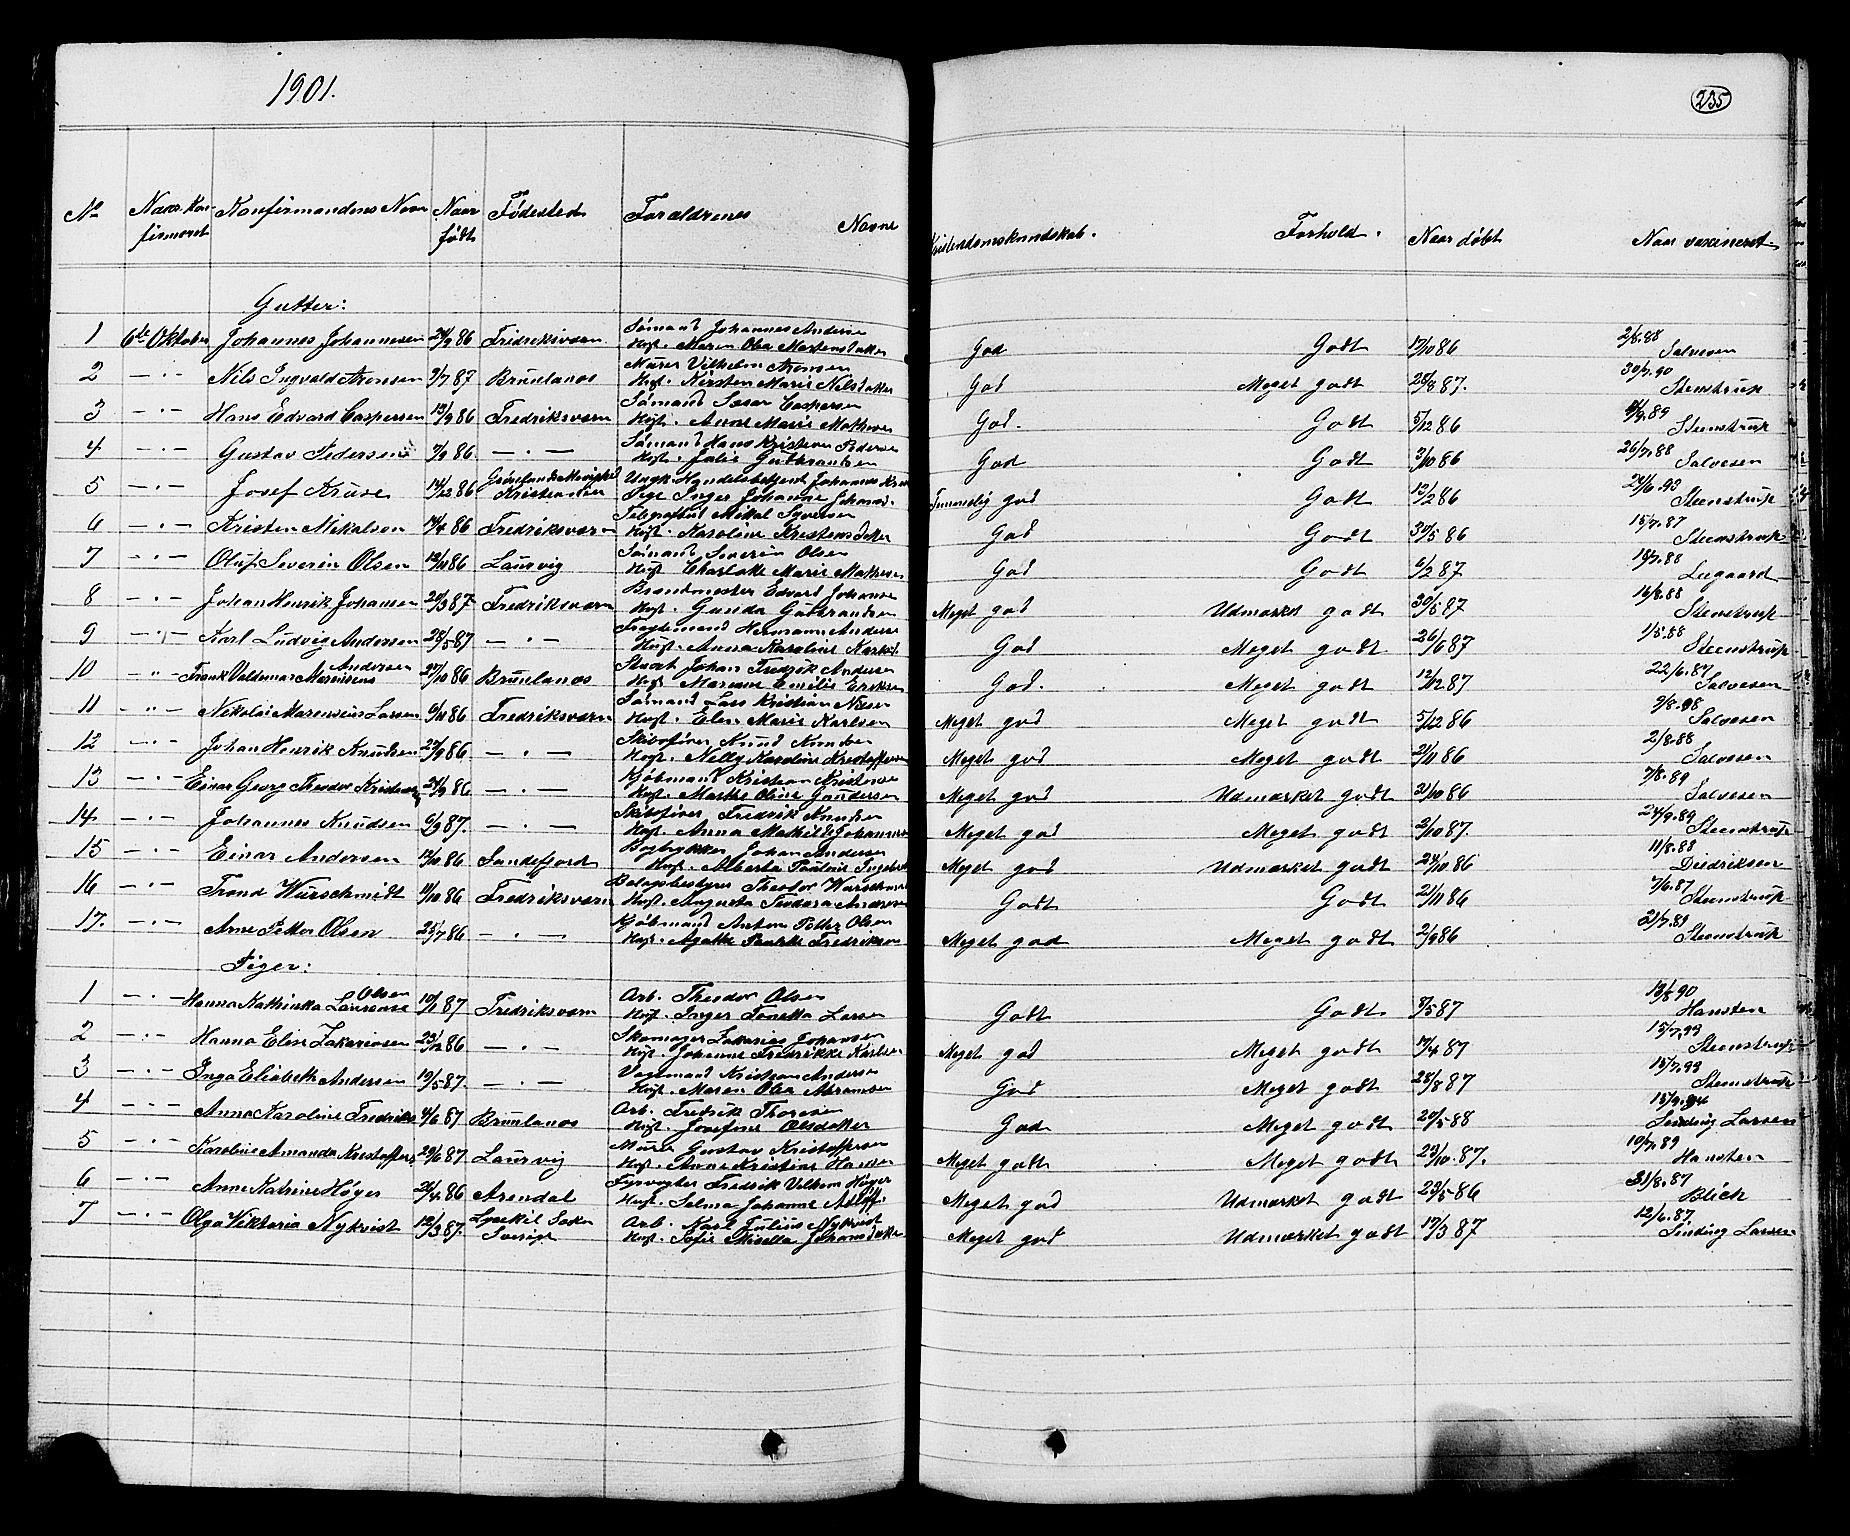 1901.
235
No Naar Konfirmeret Konfirmandens Navn Naar født Fødested Forældrenes Navne Kristendomskundskab. Forhold. Naar døbt Naar vaxineret
Gutter:
1 6te Oktober Johannes Johannesen 24/9 86 Fredriksværn Sømand Johannes Anders God Godt 17/10 86 2/8.88
Hust. Maren Olea Mortensdatter Salvesen
2 — " — Nils Ingvald Aronsen 9/7 87 Brunlanes Murer Vilhelm Aronsen God Meget godt 28/8 87. 30/7.90
Hust. Kirsten Marie Nilsdatter Steenstrup
3 — " — Hans Edvard Caspersen 13/9 86 Fredriksværn Sømand Casper Caspersen God. Godt 5/12 86 9/9.89
Hust. Anne Marie Mathisen Steenstrup
4 — " — Gustav Pedersen 7/9 86. — " — Sømand Hans Kristian Pedersen God Godt 3/10 86 26/7.88
Hust. Julie Gulbrandsen Salvesen
5 — " — Josef Kruse 14/12 86 Kristiania Ungk. Handelsbetjent Johannes Kruse God Godt 13/2 86 24/6.93
Pige Inger Johanne Johansd. Steenstrup
6 — " — Kristen Mikalsen 14/4 86 Fredriksværn Telegrafbud Mikal Syversen God Godt 30/5 86 15/7.87
Hust. Karoline Kristensdatter Steenstrup
7 — " — Oluf Severin Olsen 12/11 86 Laurvig Sømand Severin Olsen God Godt 6/2 87 18/7.88
Hust. Charlotte Marie Mathisen Lugaard
8 — " — Johan Henrik Johansen 20/3 87. Fredriksværn Brandmester Edvard Johansen Meget god Udmærket godt 30/5 87 16/8.88
Hust. Gunda Gulbrandsen Steenstrup
9 — " — Karl Ludvig Andersen 28/5 87 — " — Fragtemand Hermann Anders God Meget godt 26/6 87 1/5.88
Hust. Anna Karoline Steenstrup
10 — " — Frank Valdemar Marensius Andersen 27/10 86 Brunlanes Stuert Johan Fredrik Andersen God. Meget godt 12/12 87 22/6.87
Hust. Mariane Emilie Eriksen Salvesen
11 — " — Nikolai Marensius Larsen 9/11 86 Fredriksværn Sømand Lars Kristian Meget god Meget godt 5/12 86 9/8.98
Hust. Elen Marie Karlsen Salvesen
12 — " — Johan Henrik Knudsen 23/9 86 — " — Skibsfører Knud Knudsen Meget god Meget godt 21/11 86 2/8.88
Hust. Nelly Karoline Kristoffersen Salvesen
13 — " — Einar Georg Theodor Kristensen 24/9 86 — " — Kjøbmand Kristian Kristensen Meget god Udmærket godt 21/10 86 7/8.89
Hust. Marthe Oline Gundersen Salvesen
14 — " — Johannes Knudsen 6/9 87. — " — Skibsfører Fredrik Knudsen Meget god Meget godt 2/10 87. 24/9.89
Hust. Anna Mathilde Johannesen Steenstrup
15 — " — Einar Andersen 13/10 86 Sandefjord Bogtrykker Johan Andersen Meget god Udmærket godt 24/10 86 11/8.88
Hust. Alberta Pauline Diedriksen
16 — " — Trond Würschmidt 11/10 86 Fredriksværn Theodor Würschmidt Godt Godt 21/11 86 7/6.87
Hust. Augusta Teodora Andersen Steenstrup
17. — " — Arne Petter Olsen 25/7 86 — " — Kjøbmand Anton Petter Olsen Meget god Meget godt 2/9 86 21/7.89
Hust. Agathe Fredriksen Steenstrup
Piger:
1 — " — Hanna Kathinka Laurense Olsen 10/1 87 Fredriksværn Arb. Theodor Olsen Godt Godt 8/5 87 13/8 90
Hust. Inger Tonetta Larsen Hansten
2 — " — Hanna Elise Zakariasen 23/12 86 — " — Skomager Zakarias Johansen Meget god Meget godt 17/4 87 15/7.93
Hust. Johanne Fredrikke Karlsen Steenstrup
3 — " — Inga Elisabeth Andersen 19/5 87. — " — Kristian Andersen God Meget godt 28/8 87 15/7.93
Hust. Maren Olea Abramsen Steenstrup
4 — " — Anna Karoline Fredriks 4/6 87 Brunlanes Arb. Fredrik Thoresen God Meget godt 20/5 88 15/9.94
Hust. Josefine Olsdatter Sinding Larsen
5 — " — Karoline Amanda Kristoffers 29/6 87 Laurvig Murer Gustav Kristoffersen Meget godt Meget godt 23/10.87. 19/7.89
Hust. Anne Kristine Hansen Hansten
6 — " — Anne Katrine Høyer 26/4 86 Arendal Fyrvogter Fredrik Vilhelm Høyer Meget god Udmærket godt 23/5 86 31/8.87
Hust. Selma Johanne Adolff. Blich
7 — " — Olga Viktoria Nykvist 12/3 87. Lysekil Arb. Karl Julius Nykvist Meget god Udmærket godt 17/3 87 12/6.87
Sverige Hust. Sofie Johansdatter Sinding Larsen